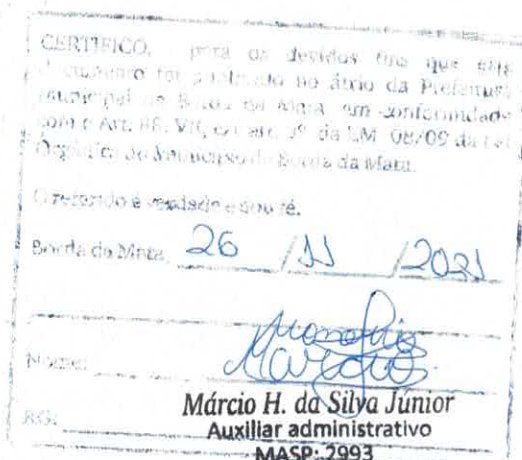 CERTIFICO, para os devidos fins que este
documento foi publicado no átrio da Prefeitura
Municipal de Borda da Mata, em conformidade
com o Art. 88, VII, c/c art. 1º da EM 08/09 da Lei
Orgânica do Município de Borda da Mata.
O referido é verdade e dou fé.
Borda da Mata, 26 / 11 / 2021
Nome:
RG:
Márcio H. da Silva Júnior
Auxiliar administrativo
MASP: 2993